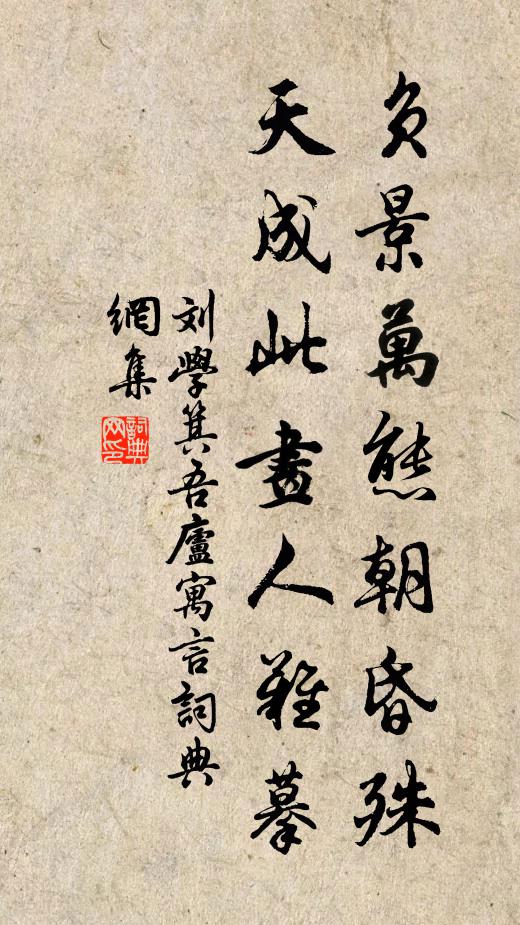 负景萬態朝昏殊
天成此畫人難摹
刘學箕吾廬寓言詞典
網集
詞典網印